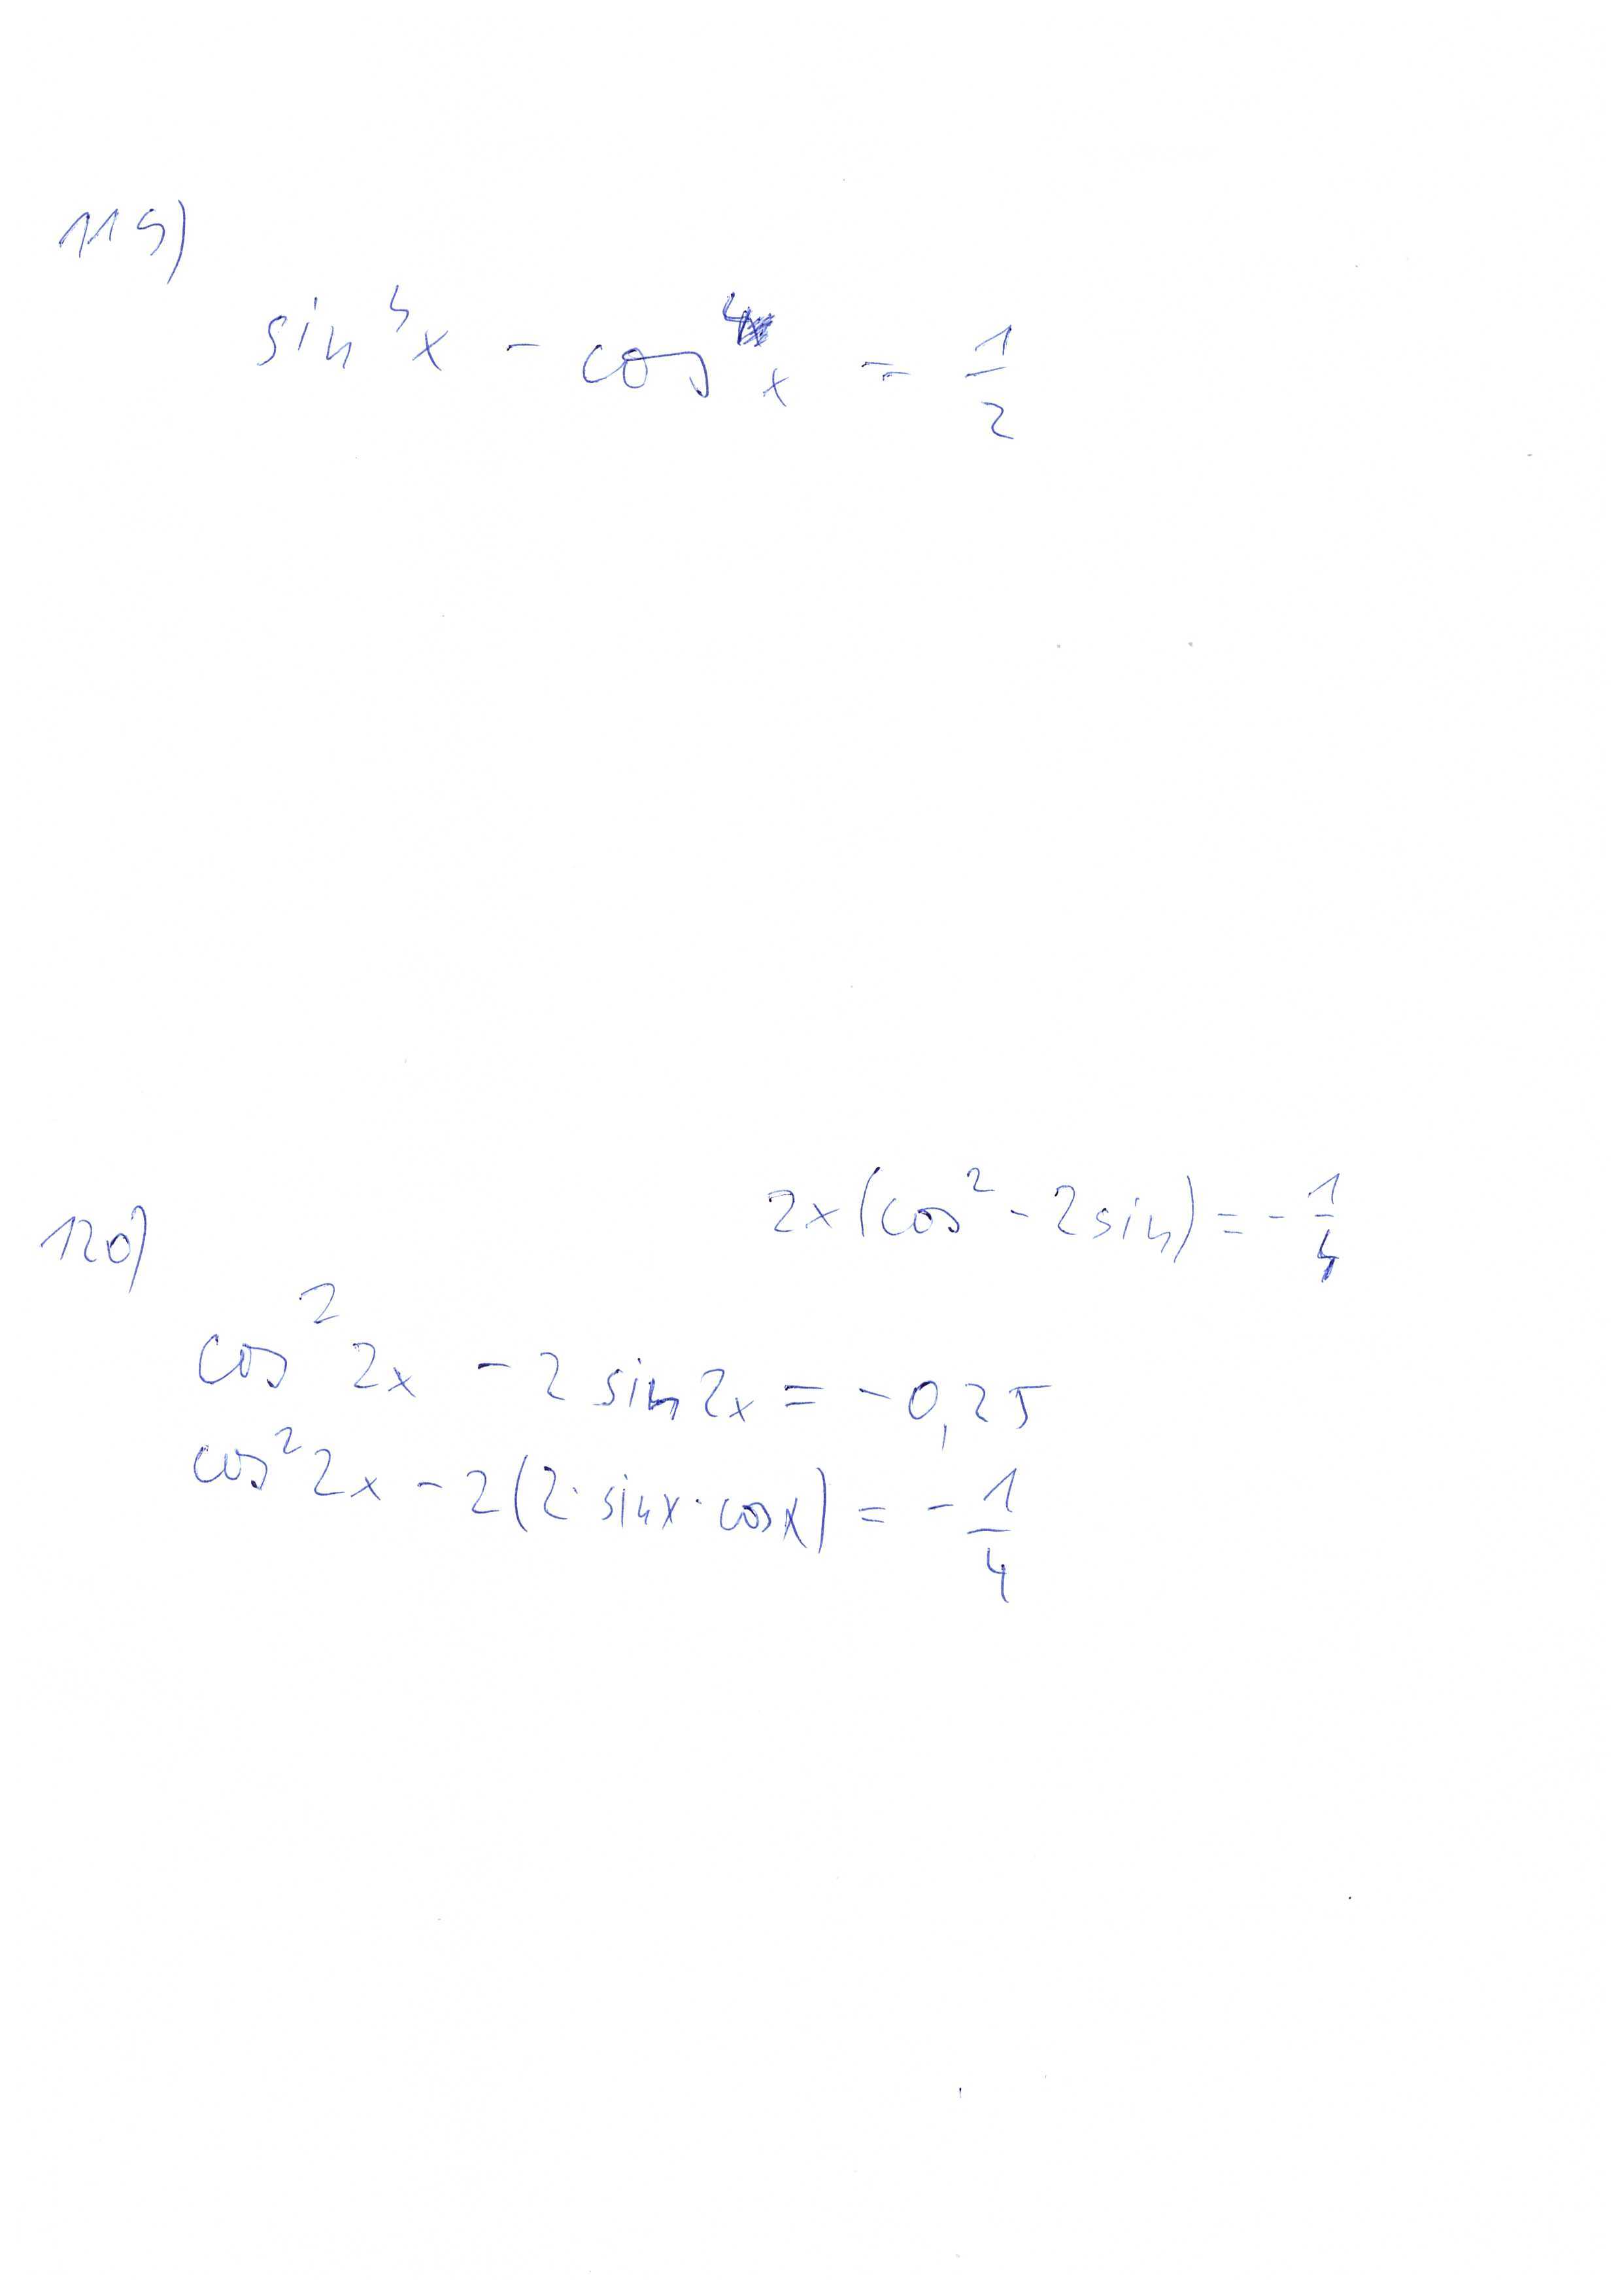 119)
sin⁴x - cos⁴x = 1/2
2x(cos² - 2sin) = - 1/4
120)
cos² 2x - 2 sin 2x = -0,25
cos² 2x - 2(2·sinx·cosx) = - 1/4